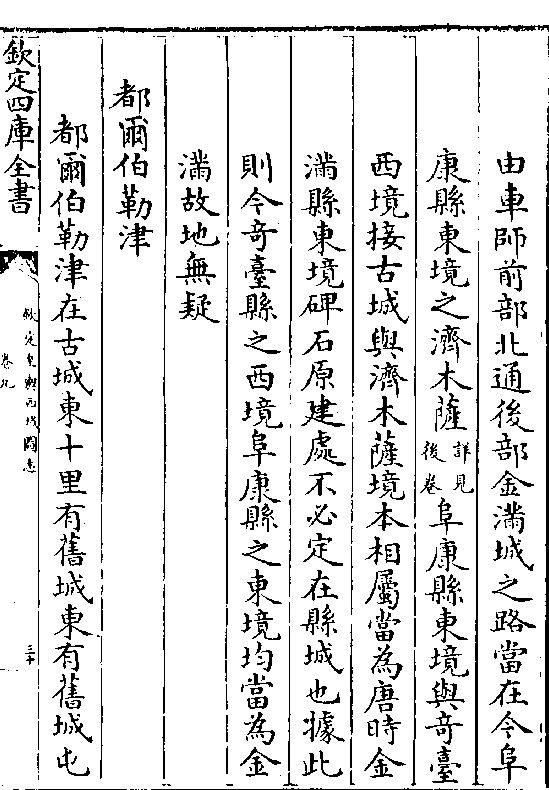 由車師前部北通後部金滿城之路當在今阜
康縣東境之濟木薩詳見後卷阜康縣東境與奇臺
西境接古城與濟木薩境本相屬當為唐時金
滿縣東境碑石原建處不必定在縣城也據此
則今奇臺縣之西境阜康縣之東境均當為金
滿故地無疑
都爾伯勒津
都爾伯勒津在古城東十里有舊城東有舊城屯
欽定四庫全書
欽定皇輿西域圖志
卷九
三十